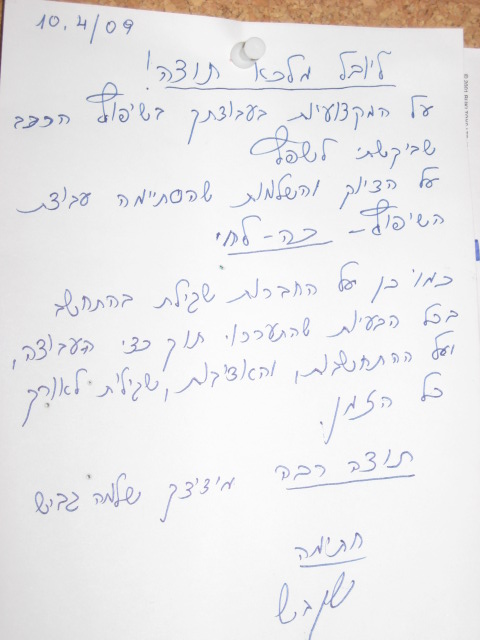 10.4/09
ליובל מלכא תודה!
על המקצועיות בעבודתך בשיפוץ הרכב
שביקשתי לשפץ
על הדיוק והשלמות שהסתיימה עבודת
השיפוץ - כה-לחי
כמו כן על החברות שגילת בהתחשב
בכל הבעיות שהתעררו תוך כדי העבודה,
ועל ההתחשבות, והאדיבות, שגילית לאורך
כל הזמן.
תודה רבה איציק שלמה גביש
חתימה